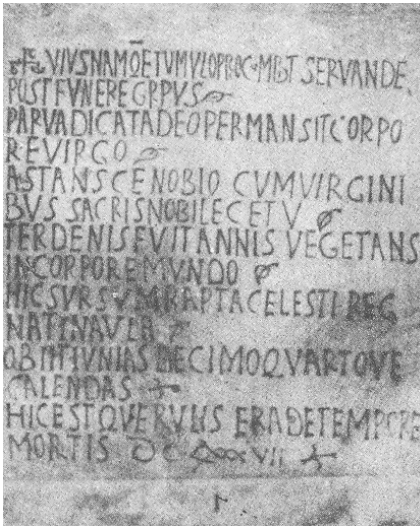 VIVSNAMQ̄ETVMVLOPROC·MBT SERVANDE
POSTFVNERE
PARVADICATADEOPERMANSITCORPO
REVIRGO
ASTANSCENOBIO CVMVIRGINI
BVS SACRISNOBILECETV
TERDENISEVITANNIS VEGETANS
INCORPOREMVNDO
HICSVRSVMRAPTACELESTIREG
NATINAVLA
OBIITIVNIAS DECIMOQVARTOQVE
CALENDAS
HICESTQVERVLVS ERADETEMPORE
MORTIS